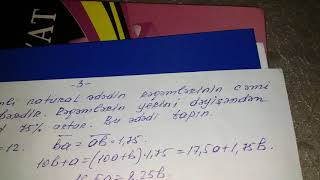 YAT
-3-
natural ədədin rəqəmlərinin cəmi
bərabərdir. Rəqəmlərin yerini dəyişəndən
75% artar. Bu ədədi tapın.
=12. ba = ab·1,75.
10b+a=(10a+b)·1,75=17,5a+1,75b.
16,5a=8,25b.